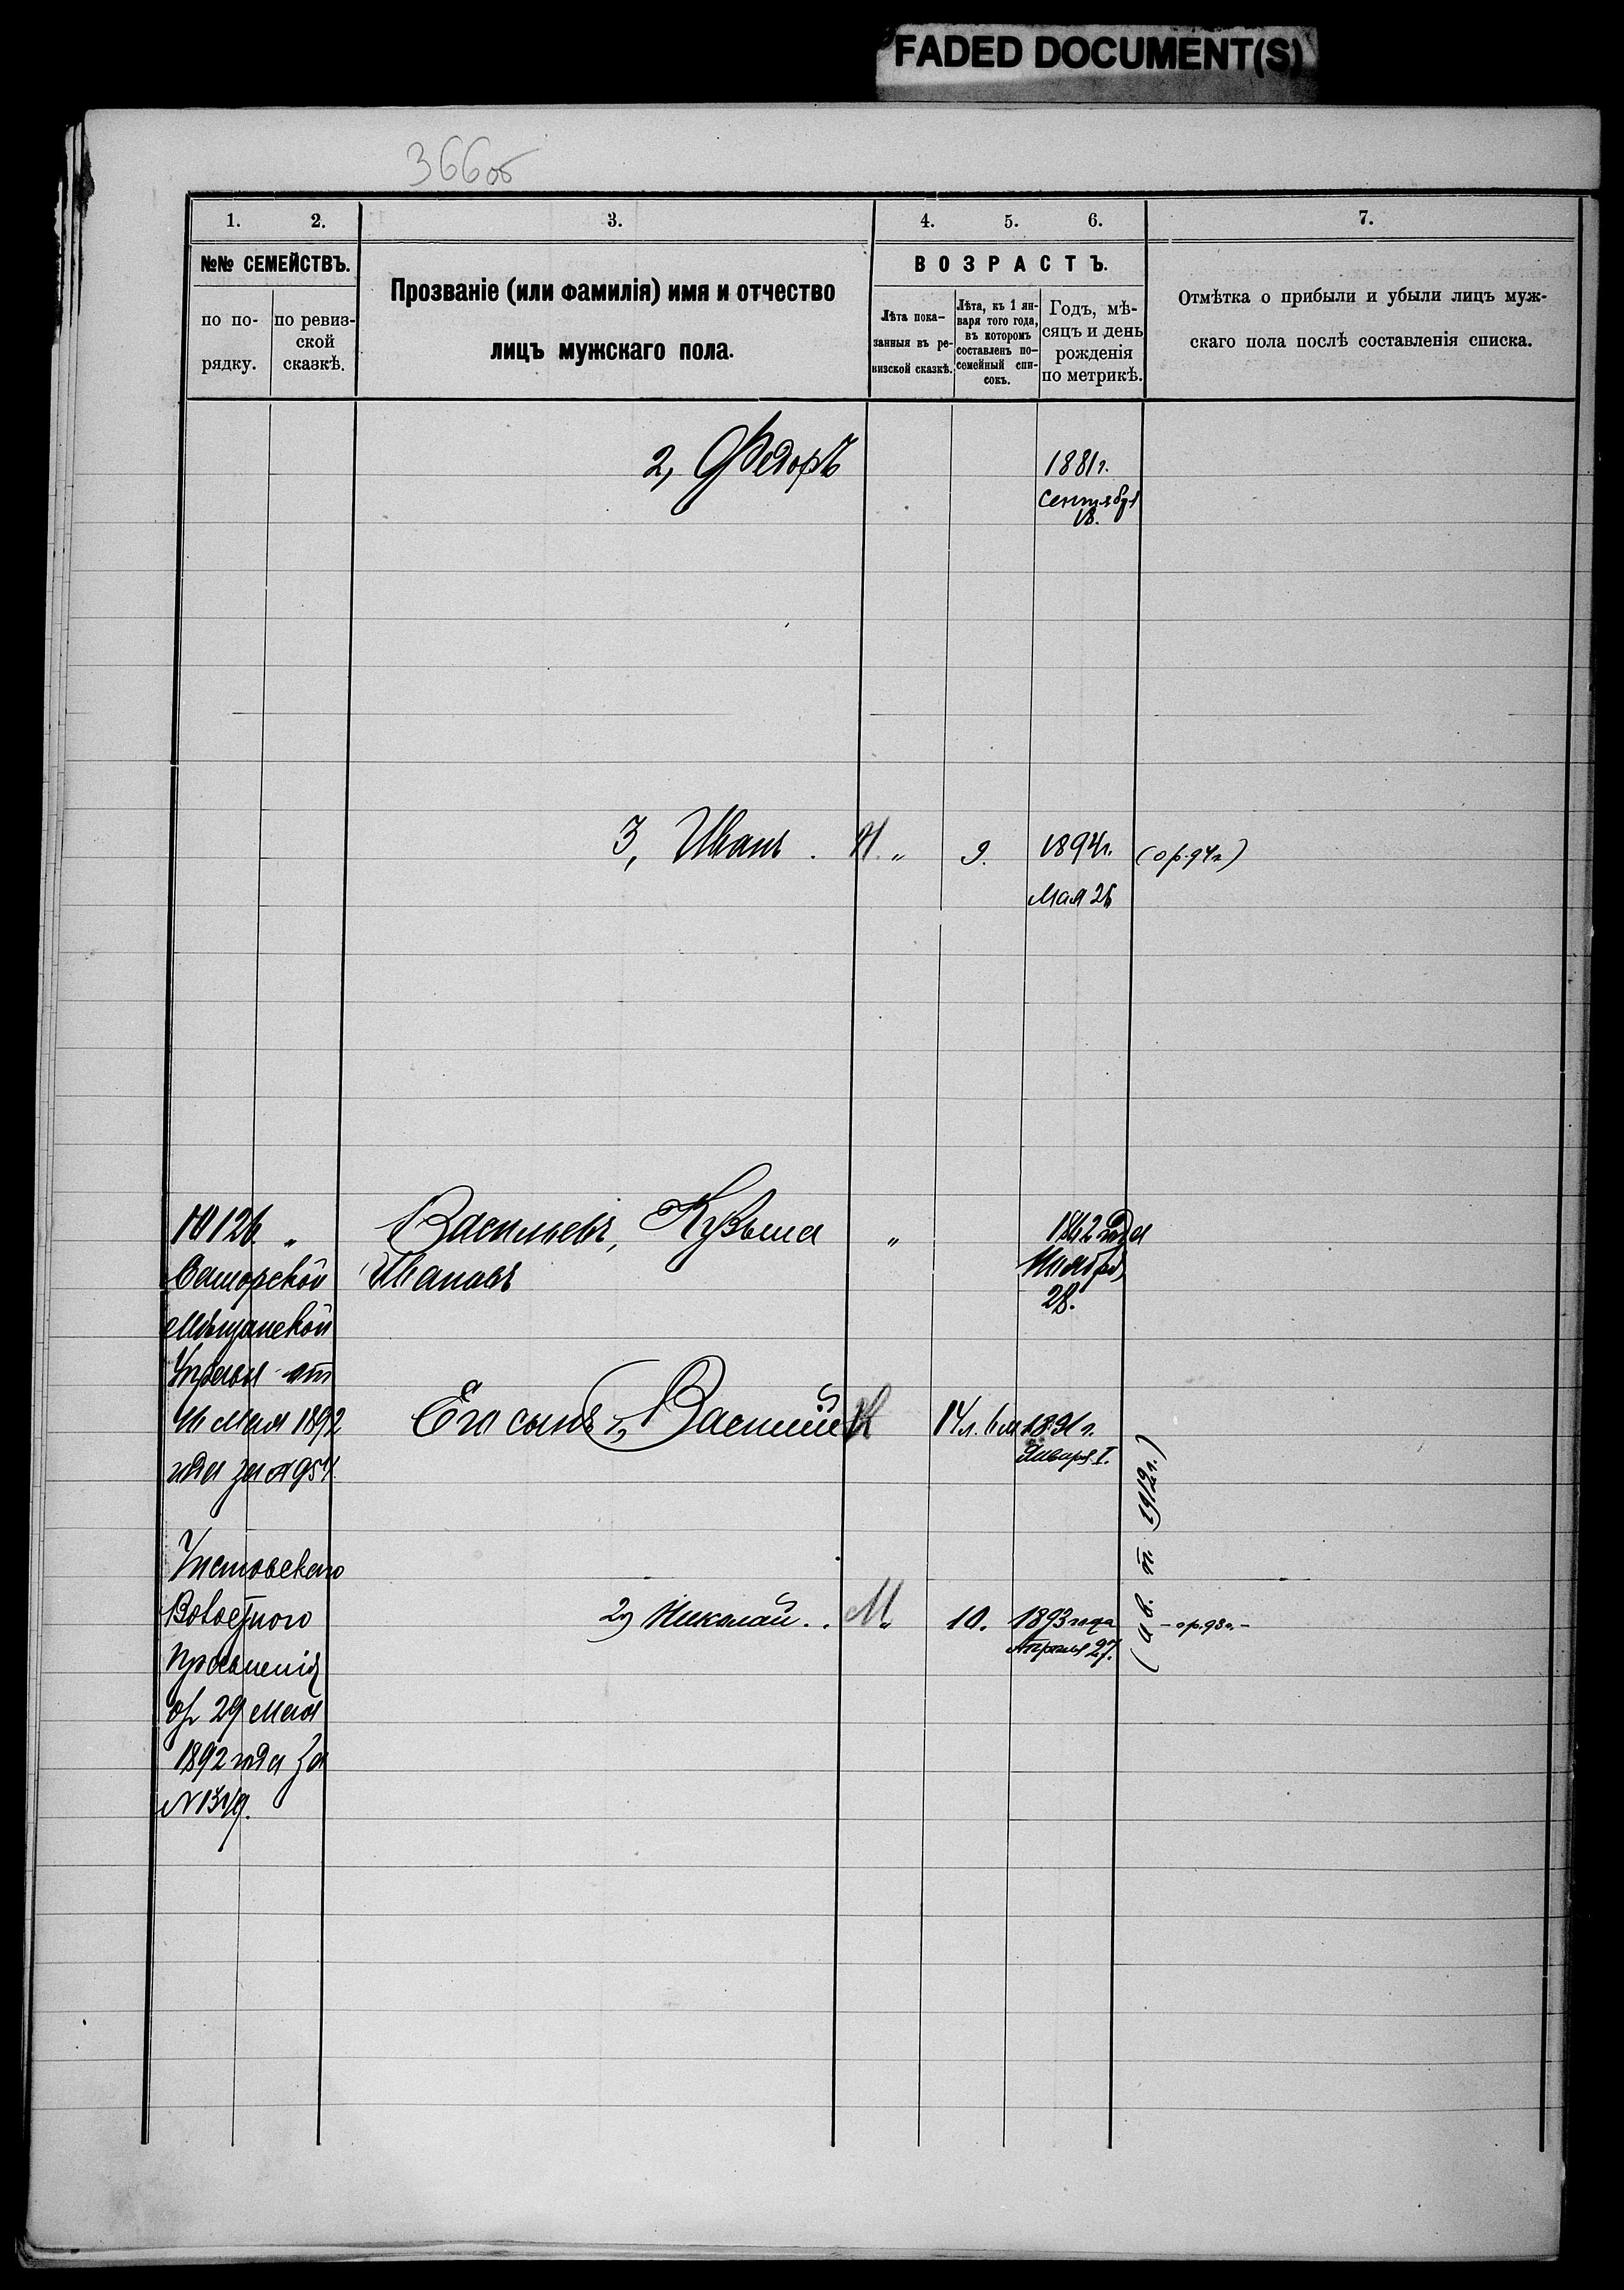 FADED DOCUMENT(S)
366об
1. 2. 3. 4. 5. 6. 7.
№№ СЕМЕЙСТВЪ.
по по-
рядку.
по ревиз-
ской
сказкѣ.
Прозваніе (или фамилія) имя и отчество
лицъ мужскаго пола.
ВОЗРАСТЪ.
Лѣта пока-
занныя въ ре-
визской сказкѣ.
Лѣта, къ 1 ян-
варя того года,
въ которомъ
составленъ по-
семейный спи-
сокъ.
Годъ, мѣ-
сяцъ и день
рожденія
по метрикѣ.
Отмѣтка о прибыли и убыли лицъ муж-
скаго пола послѣ составленія списка.
2, Федоръ 1881 г.
Сентября
18.
3, Иванъ . „ 9. 1894 г. (ор. 94 г)
Мая 26
126. „ Васильевъ, Кузьма „ 1862 года
Ивановъ
28.
Мѣщанской
Управы от
Мая 1892
года за № 954
Его сынъ 1, Василій 1891 г.
Января 1.
2) Николай . . М „ 10. 1893 года – ор. 93 г. –
Апрѣля 27.
1912 г.)
Правленія
от 29 Мая
1892 года за
№ 1319.